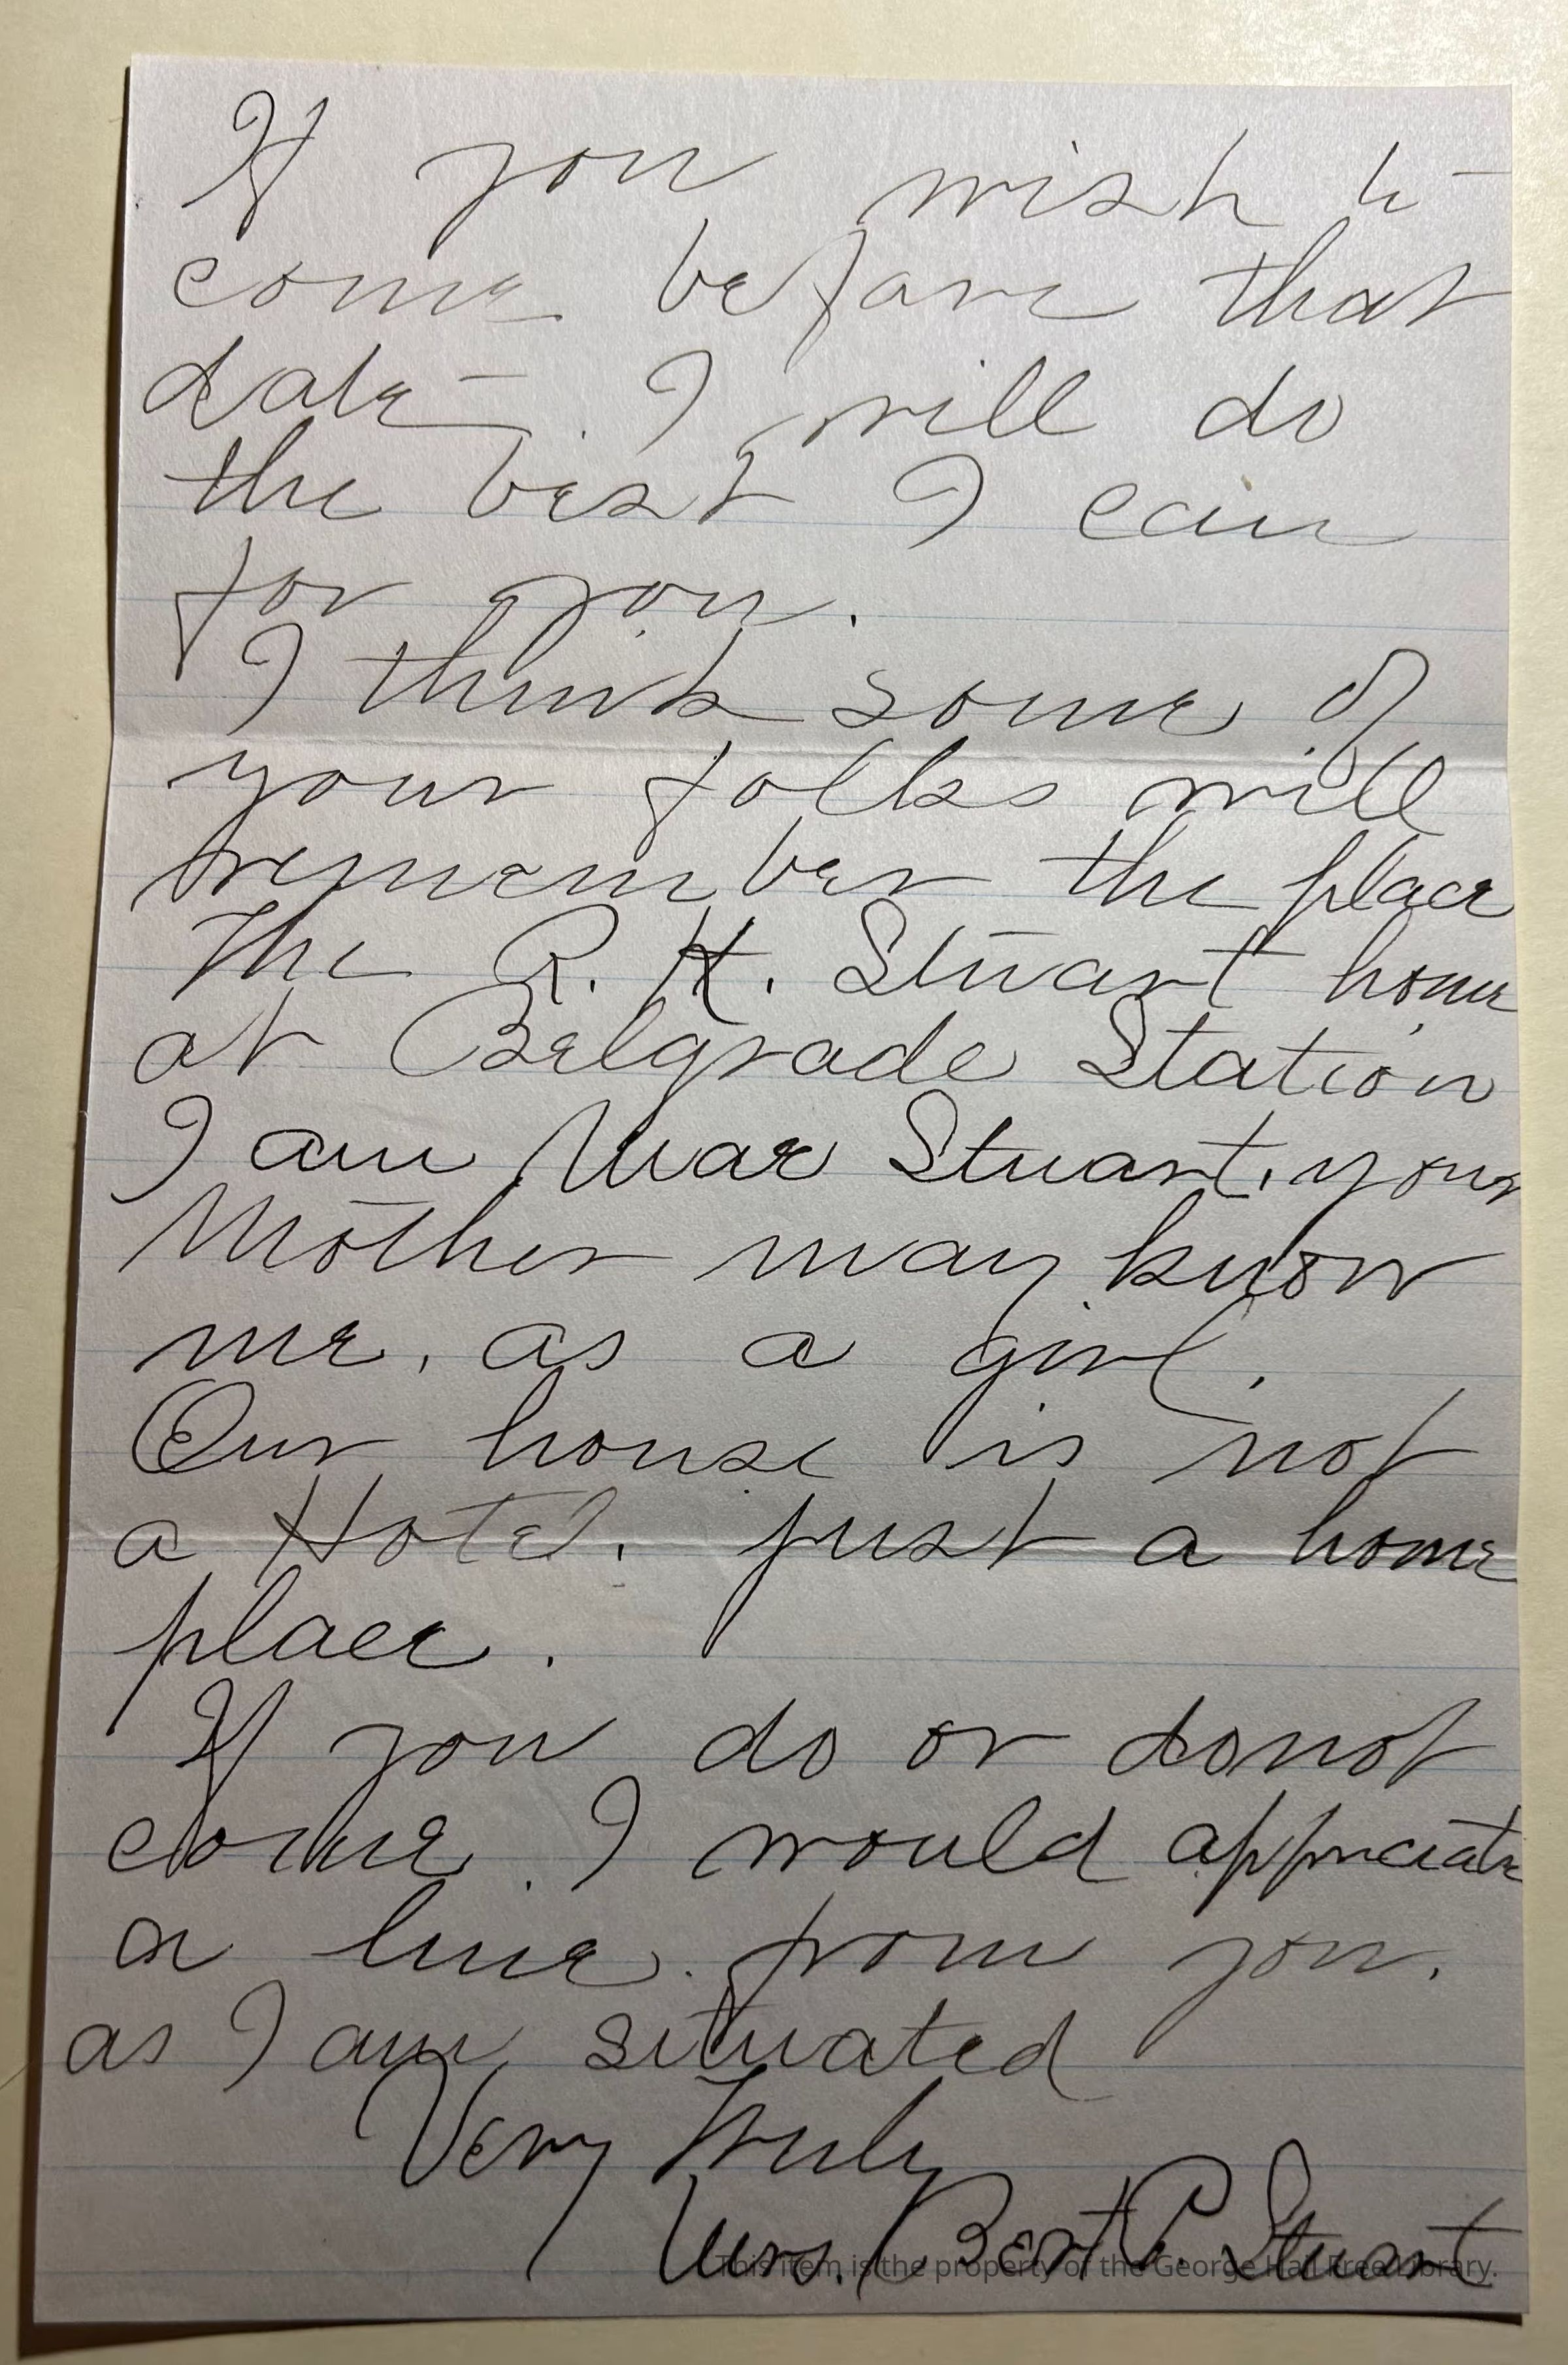 If you wish to
come before that
date. I will do
the best I can
for you.
I think some of
your folks will
remember the place
The R. H. Stuart home
at Belgrade Station
I am Mae Stuart, your
Mother may know
me, as a girl.
Our house is not
a Hotel. just a home
place.
If you do or donot
come. I would appreciate
a line from you.
as I am situated
Very truly
Mrs. Bert P. Stuart
This item is the property of the George Hall Free Library.